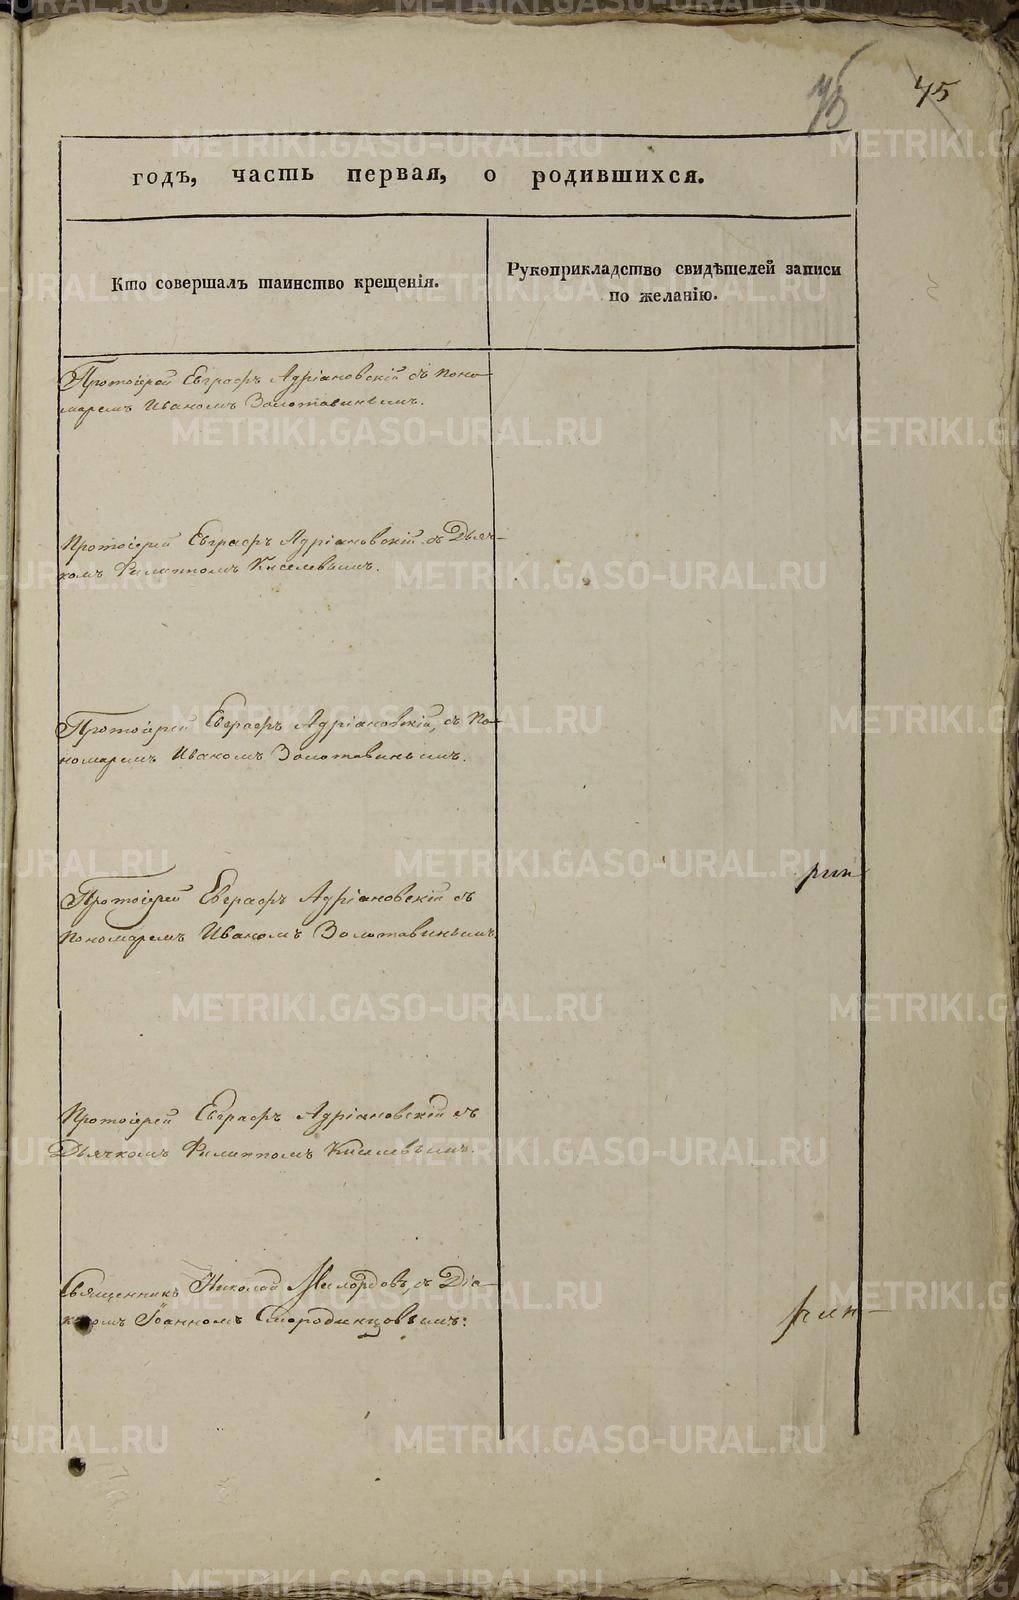 75
75
годъ, часть первая, о родившихся.
Кто совершалъ таинство крещенія.
Рукоприкладство свидѣтелей записи
по желанію.
Протоіерей Евграфъ Адріановскій съ поно-
маремъ Иваномъ Золотавинымъ.
Протоіерей Евграфъ Адріановскій съ Дьяч-
комъ Филиппомъ Киселевымъ.
Протоіерей Евграфъ Адріановскій, съ По-
номаремъ Иваномъ Золотавинымъ.
Протоіерей Евграфъ Адріановскій съ
Пономаремъ Иваномъ Золотавинымъ
Протоіерей Евграфъ Адріановскій съ
Дьячкомъ Филиппомъ Киселевымъ.
Священникъ Николай Милордовъ, съ Діа-
кономъ Іоанномъ Смородинцовымъ:
METRIKI.GASO-URAL.RU